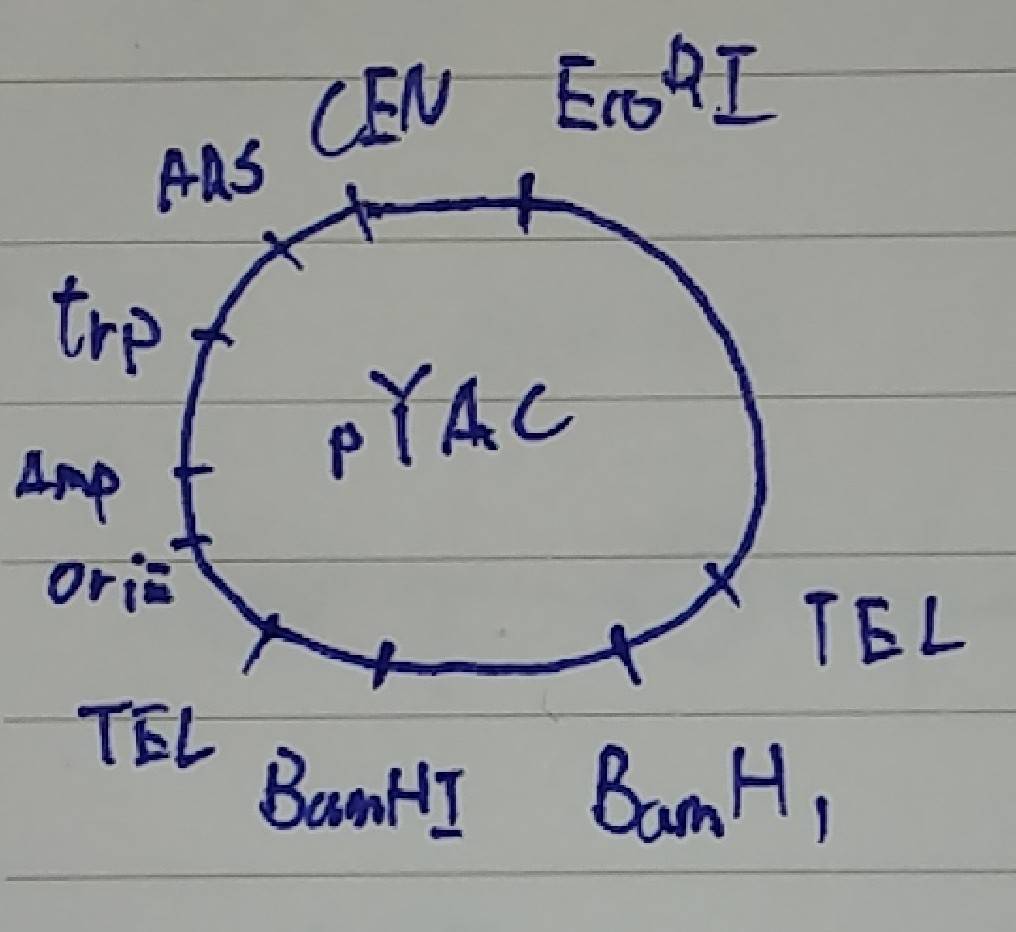 CEN EcoRI
ARS
trp
pYAC
Amp
ori
TEL
TEL
BamHI BamH1